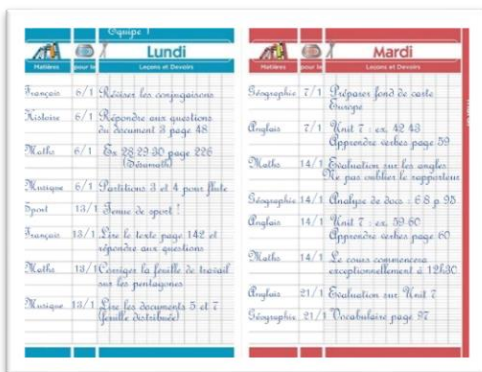 Equipe 1
Lundi
Matières pour le Leçons et Devoirs
Français 6/1 Réviser les conjugaisons
Histoire 6/1 Répondre aux questions
du document 3 page 48
Maths 6/1 Ex 28-29-30 page 226
Musique 6/1 Partitions 3 et 4 pour flute
Sport 13/1 Tenue de sport !
Français 13/1 Lire le texte page 142 et
répondre aux questions
Maths 13/1 Corriger la feuille de travail
sur les pentagones
Musique 13/1 Lire les documents 5 et 7
(feuille distribuée)
Mardi
Matières pour le Leçons et Devoirs
Géographie 7/1 Préparer fond de carte
Europe
Anglais 7/1 Unit 7 : ex. 42-43
Apprendre verbes page 59
Maths 14/1 Evaluation sur les angles.
Ne pas oublier le rapporteur
Géographie 14/1 Analyse de docs : 6-8 p 95
Anglais 14/1 Unit 7 : ex. 59-60
Apprendre verbes page 60
Maths 14/1 Le cours commencera
exceptionnellement à 12h30
Anglais 21/1 Evaluation sur Unit 7
Géographie 21/1 Vocabulaire page 97